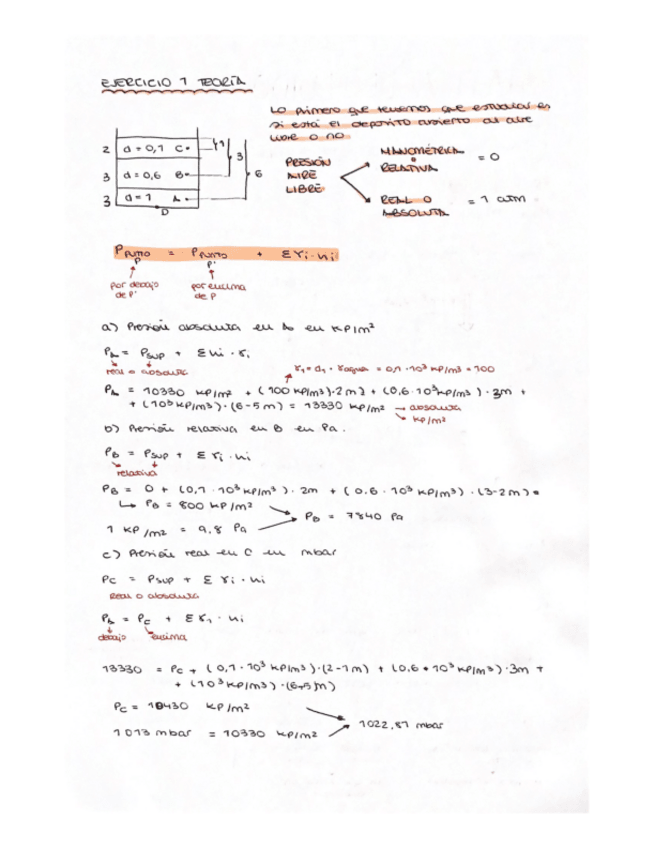 EJERCICIO 1 TEORÍA
Lo primero que tenemos que estudiar es
si está el depósito abierto al aire
libre o no
2 d = 0,1 C• 1
3 d = 0,6 B• 3
3 d = 1 A• 6
D
PRESIÓN
AIRE
LIBRE
MANOMÉTRICA
o
RELATIVA = 0
REAL O
ABSOLUTA = 1 atm
P PUNTO P = P PUNTO P' + Σ γi · hi
por debajo
de P'
por encima
de P
a) Presión absoluta en A en KP/m²
PA = PSUP + Σ hi · γi
real o absoluta
γ1 = d1 · γagua = 0,1 · 10³ KP/m³ = 100
PA = 10330 KP/m² + (100 KP/m³)·2m + (0,6·10³ KP/m³)·3m +
+ (10³ KP/m³)·(6-5m) = 13330 KP/m² → absoluta
KP/m²
b) Presión relativa en B en Pa.
PB = PSUP + Σ γi · hi
relativa
PB = 0 + (0,1 · 10³ KP/m³) · 2m + (0.6 · 10³ KP/m³) · (3-2m) =
↳ PB = 800 KP/m²
PB = 7840 Pa
1 KP/m² = 9,8 Pa
c) Presión real en C en mbar
PC = PSUP + Σ γi · hi
Real o absoluta
PA = PC + Σ γ1 · hi
debajo encima
13330 = PC + (0,1 · 10³ KP/m³)·(2-1m) + (0,6 · 10³ KP/m³)·3m +
+ (10³ KP/m³)·(6-5m)
PC = 10430 KP/m²
1022,81 mbar
1013 mbar = 10330 KP/m²